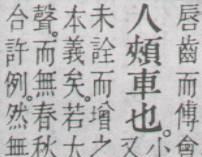 唇齒而傅會
人頰車也。
又小
未詮而增之
本義矣。若大
聲。而無春秋
合許例。然無